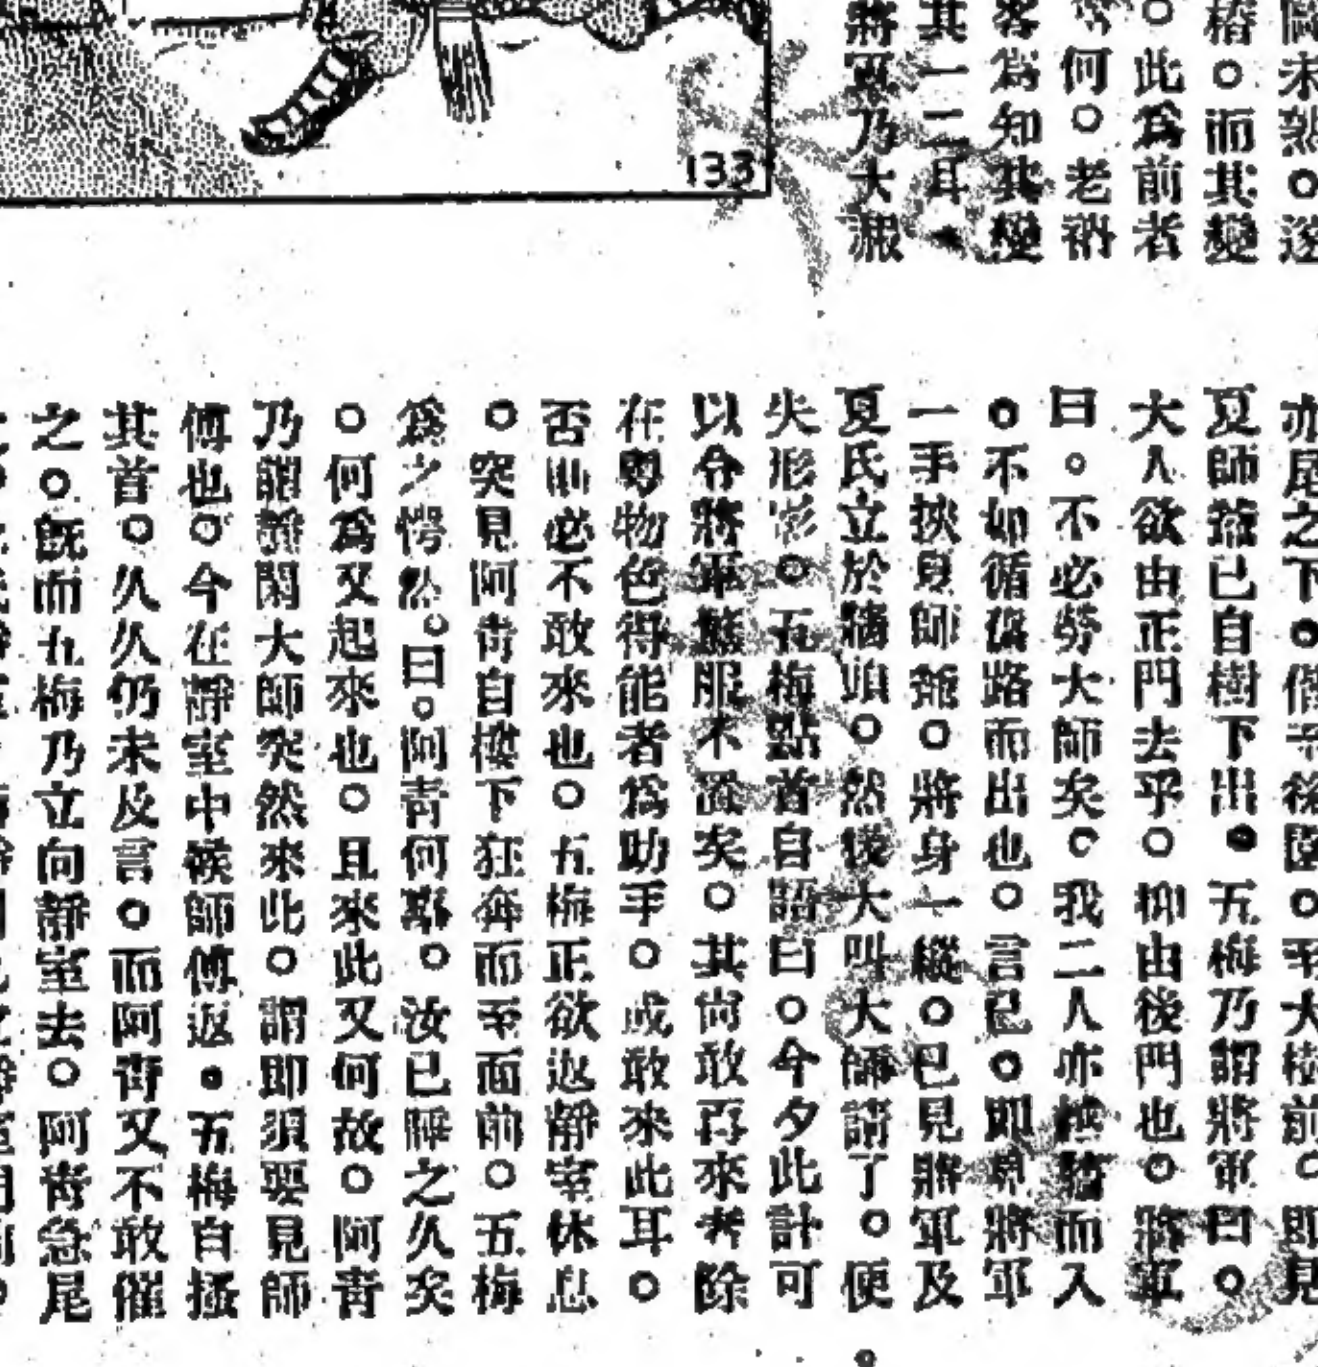 未熟。遂
樁。而其變
。此爲前者
何。老衲
客爲知其變
其一二耳
將軍乃大服
133
亦尾之下。偕至後園。至大樹前。即見
夏師爺已自樹下出。五梅乃謂將軍曰。
大人欲由正門去乎。抑由後門也。將軍
曰。不必勞大師矣。我二人亦踰牆而入
。不如循舊路而出也。言已。即見將軍
一手挾夏師爺。將身一縱。已見將軍及
夏氏立於牆頭。然後大叫大師請了。便
失形影。五梅點首自語曰。今夕此計可
以令將軍懾服不置矣。其尙敢再來者除
在粵物色得能者爲助手。或敢來此耳。
否則必不敢來也。五梅正欲返靜室休息
。突見阿靑自樓下狂奔而至面前。五梅
爲之愕然。曰。阿靑何事。汝已睡之久矣
。何爲又起來也。且來此又何故。阿靑
乃謂靜閑大師突然來此。謂即須要見師
傅也。今在靜室中候師傅返。五梅自搔
其首。久久仍未反言。而阿靑又不敢催
之。旣而五梅乃立向靜室去。阿靑急尾